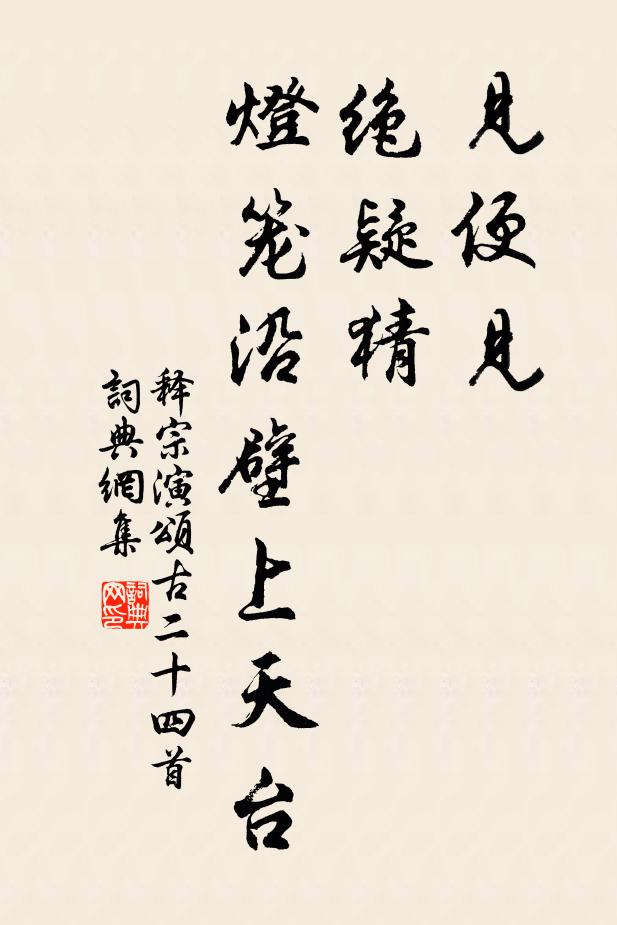 見便見
絶疑猜
燈笼沿壁上天台
释宗演頌古二十四首
詞典網集
詞典网印